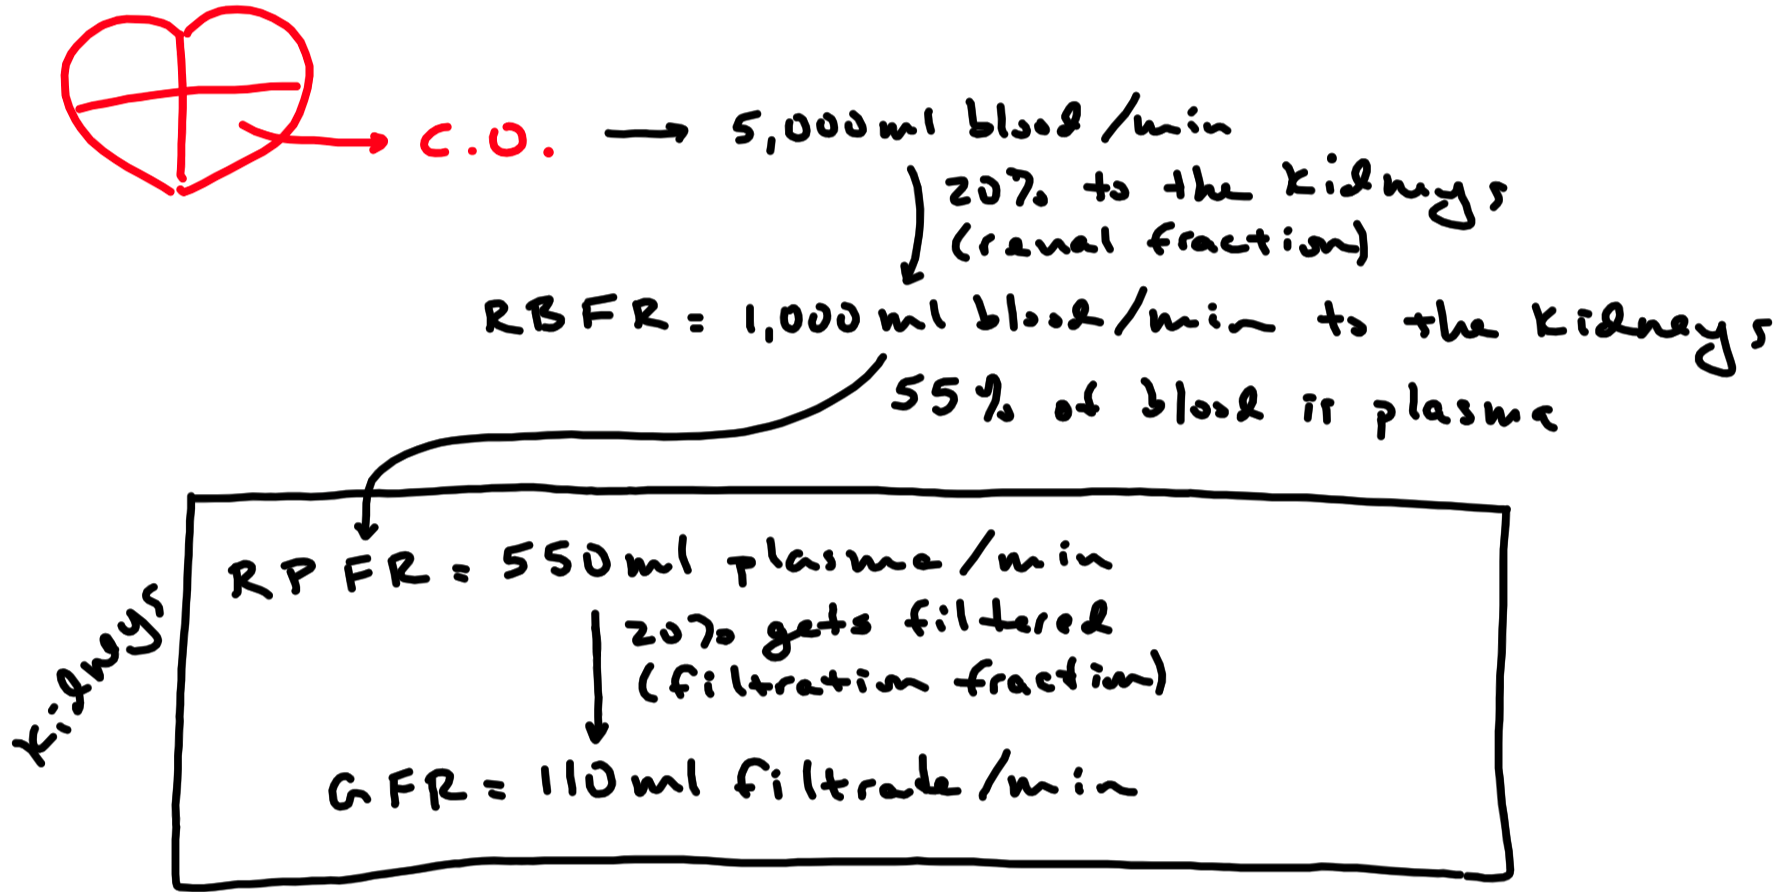 C.O. → 5,000 ml blood/min
20% to the kidneys
(renal fraction)
RBFR = 1,000 ml blood/min to the kidneys
55% of blood is plasma
Kidneys
RPFR = 550 ml plasma/min
20% gets filtered
(filtration fraction)
GFR = 110 ml filtrate/min